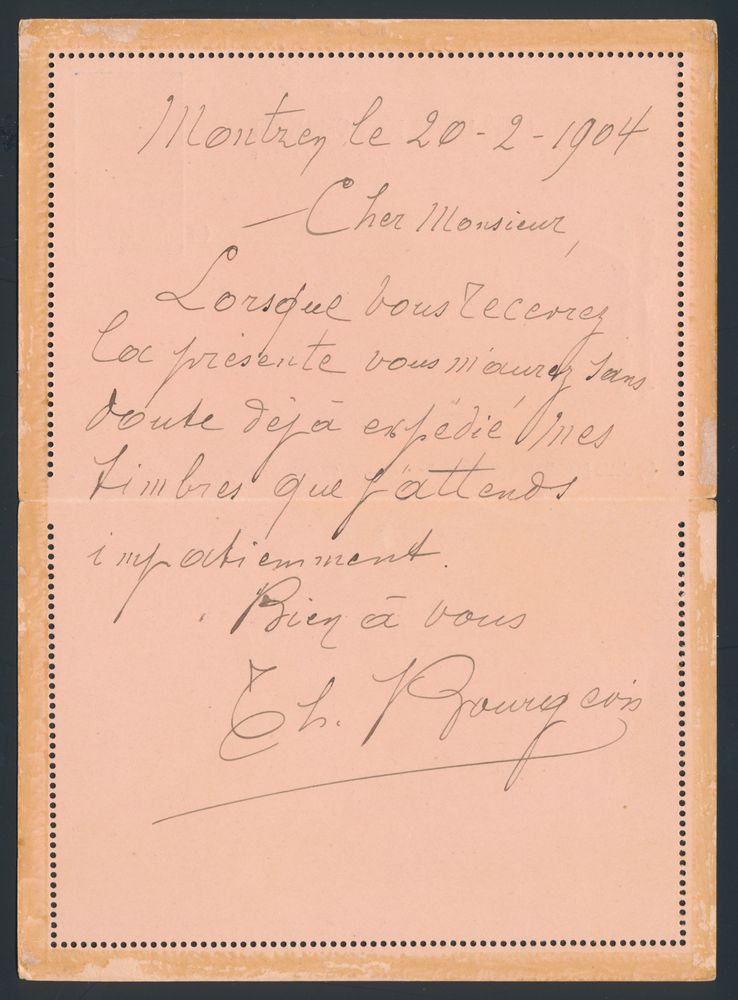 Montzen le 20-2-1904
Cher Monsieur,
Lorsque vous recevrez
la présente vous m'aurez sans
doute déjà expédié mes
timbres que j'attends
impatiemment.
Bien à vous
Th. Bourgeois